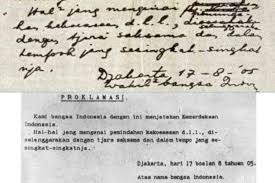 Hal² jang mengenai
kekoeasaan d.l.l.,
dengan tjara saksama dan dalam
tempoh jang sesingkat-singkat
nja.
Djakarta 17-8-'05
Wakil² bangsa Indon
PROKLAMASI
Kami bangsa Indonesia dengan ini menjatakan Kemerdekaan
Indonesia.
Hal-hal jang mengenai pemindahan kekoeasaan d.l.l., di-
selenggarakan dengan tjara saksama dan dalam tempo jang se-
singkat-singkatnja.
Djakarta, hari 17 boelan 8 tahoen 05.
Atas nama bangsa Indonesia.